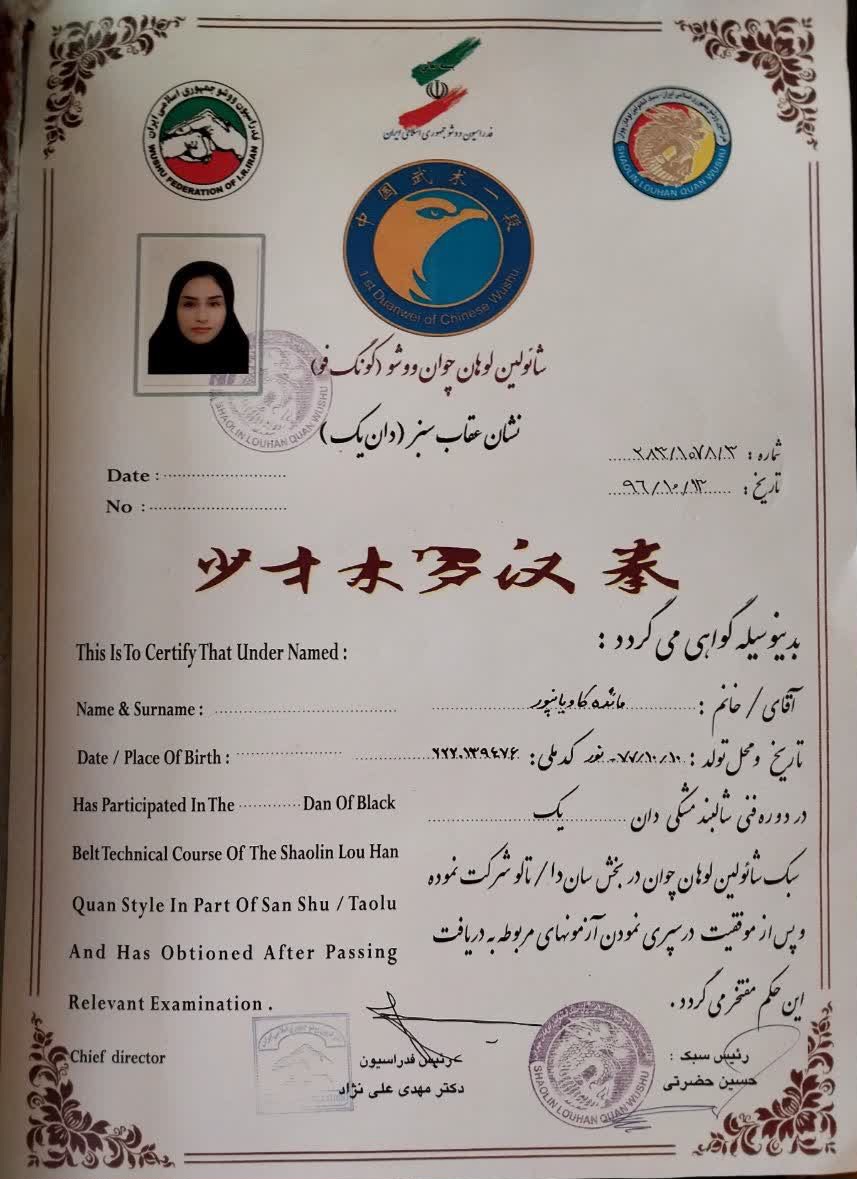 بسمه تعالی
فدراسیون ووشو جمهوری اسلامی ایران
فدراسیون ووشو جمهوری اسلامی ایران
WUSHU FEDERATION OF I.R.IRAN
SHAOLIN LOUHAN QUAN WUSHU
中国武术一段
1 st Duanwei of Chinese Wushu
شائولین لوهان چوان ووشو (کونگ فو)
SHAOLIN LOUHAN QUAN WUSHU
نشان عقاب سبز (دان یک)
شماره : ۲۸۳/۱۰۷۸/۳
Date :
تاریخ : ۹۶/۱۰/۱۳
No :
少才木罗汉拳
بدینوسیله گواهی می گردد :
This Is To Certify That Under Named :
آقای / خانم : مائده کاویانپور
Name & Surname :
تاریخ ومحل تولد : ۷۷/۱۰/۱۰- نور کد ملی : ۶۲۲۰۱۳۹۴۷۶
Date / Place Of Birth :
در دوره فنی شالبند مشکی دان یک
Has Participated In The ............ Dan Of Black
سبک شائولین لوهان چوان در بخش سان دا / تالو شرکت نموده
Belt Technical Course Of The Shaolin Lou Han
Quan Style In Part Of San Shu / Taolu
و پس از موفقیت درسپری نمودن آزمونهای مربوطه به دریافت
And Has Obtioned After Passing
این حکم مفتخر می گردد.
Relevant Examination .
Chief director
رئیس فدراسیون
دکتر مهدی علی نژاد
رئیس سبک :
حسین حضرتی
SHAOLIN LOUHAN QUAN WUSHU